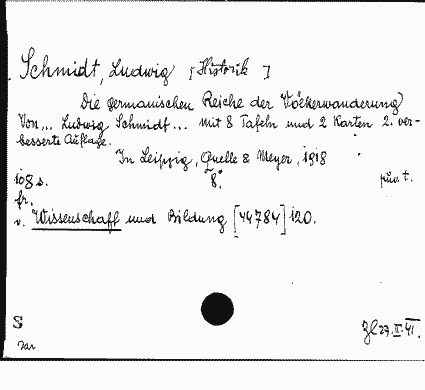 Schmidt, Ludwig [Historik]
Die germanischen Reiche der Völkerwanderung
Von... Ludwig Schmidt... mit 8 Tafeln und 2 Karten 2. ver-
besserte Auflage.
In Leipzig, Quelle & Meyer, 1918
108 s. 8° pův. t.
fr.
v. Wissenschaff und Bildung [44784] 120.
S
27.II.41.